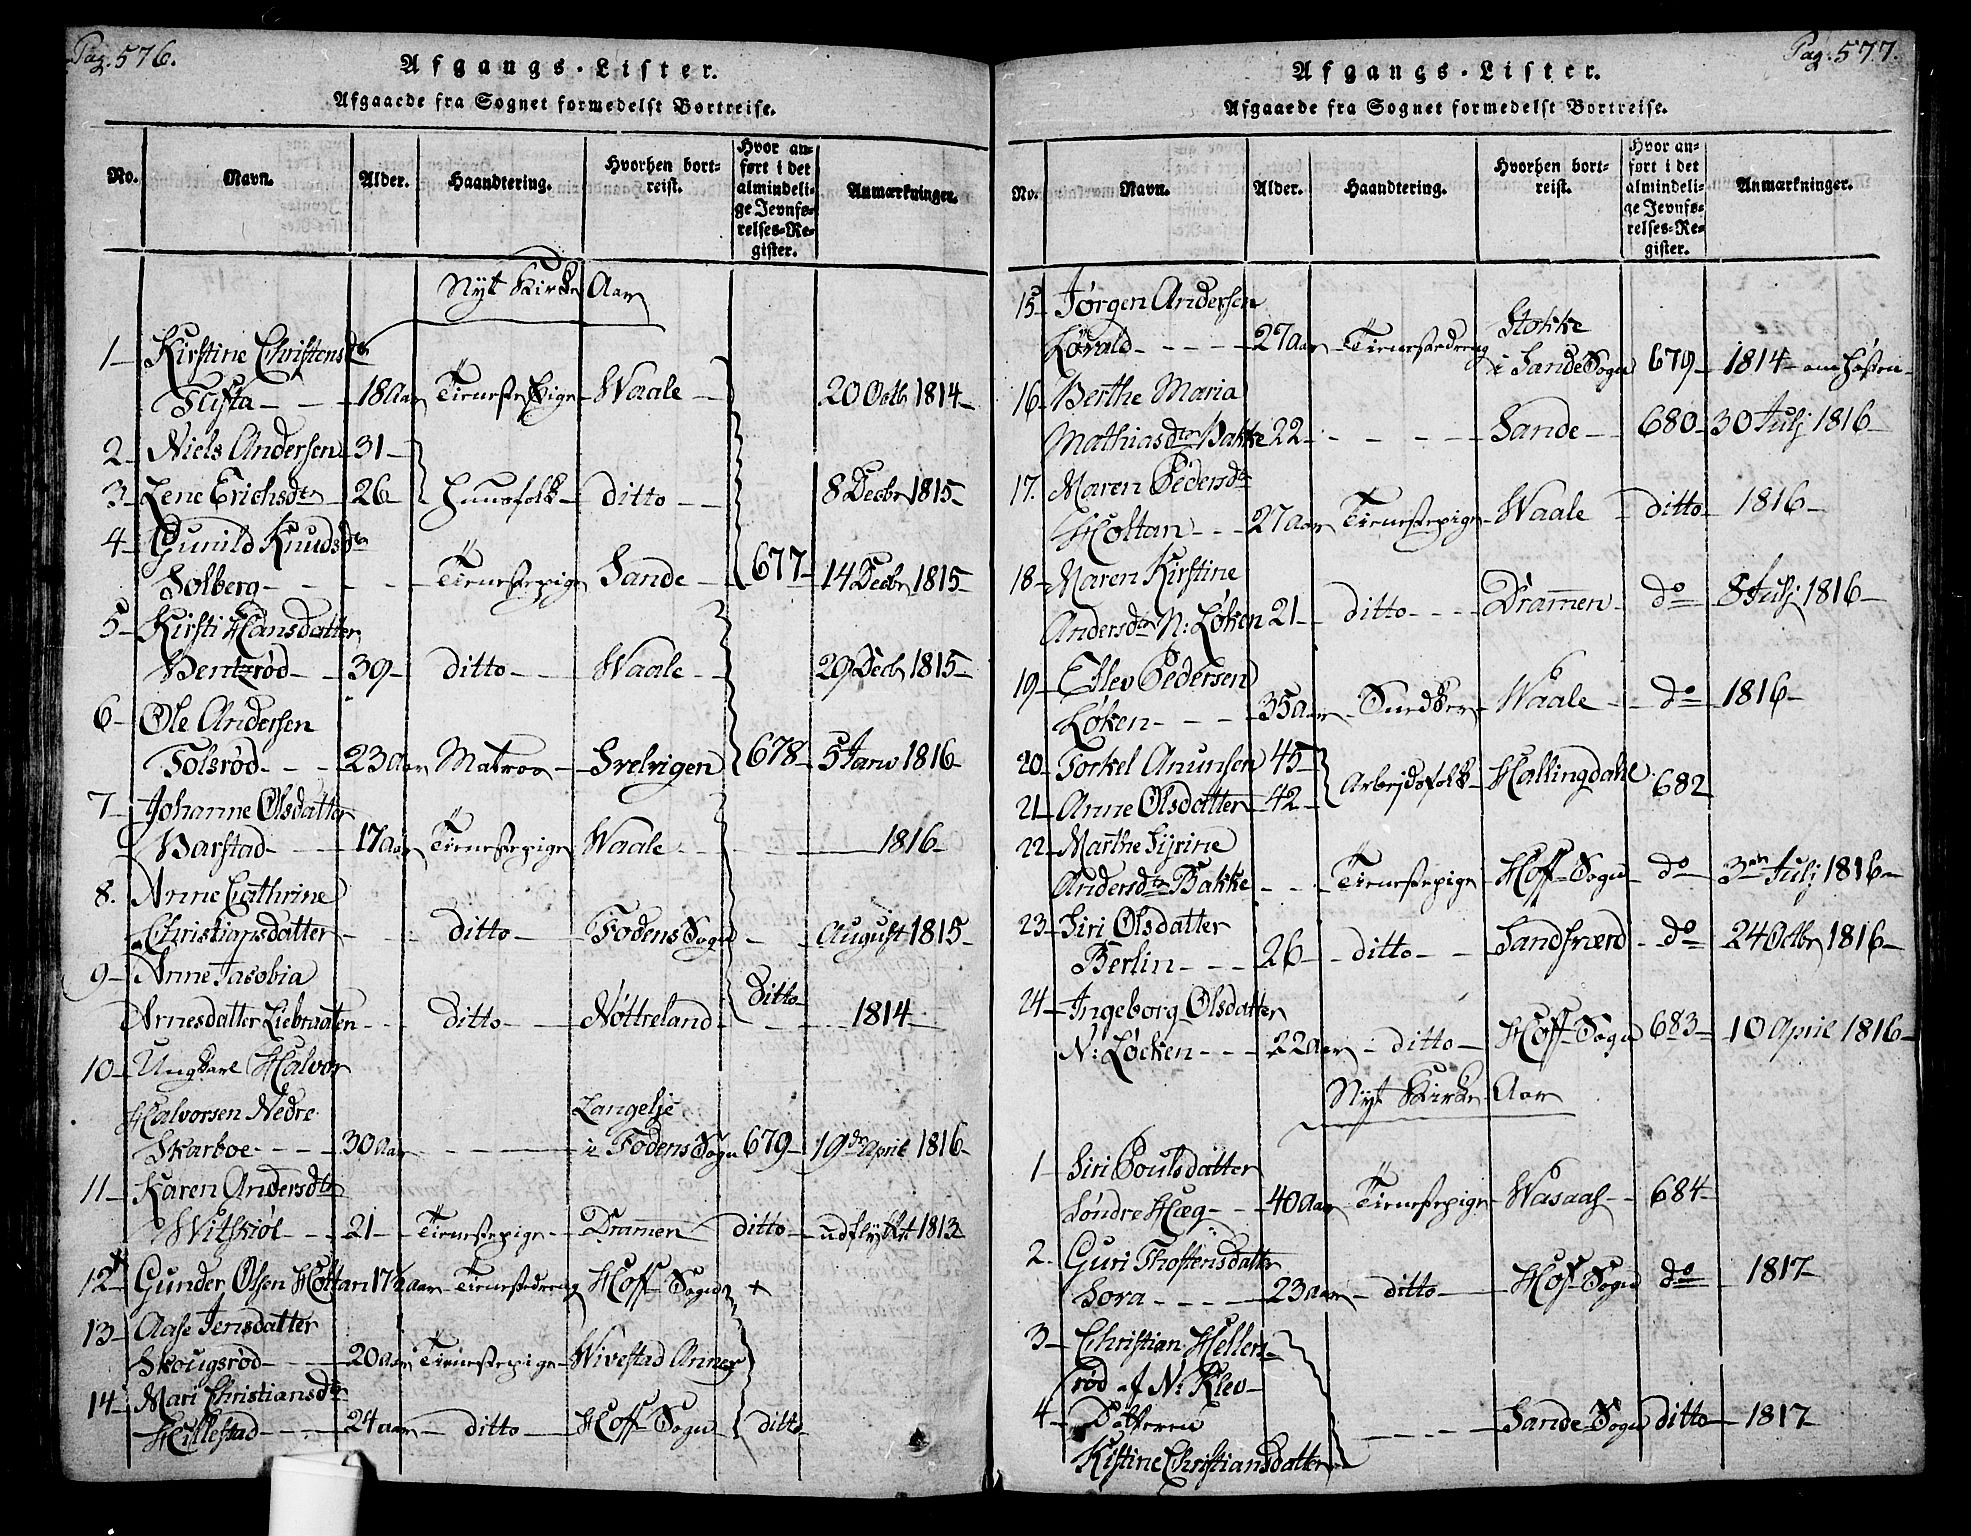 Pag. 576.
Afgangs-Lister.
Afgaaede fra Sognet formedelst Bortreise.
No. Navn. Alder. Haandtering. Hvorhen bortreist. Hvor anført i det almindelige Jevnførelses-Register. Anmærkninger.
Nyt Kirke Aar
1 Kirstine Christensdtr
Tufta 18 Aar Tieneste Pige Waale 20 Octb 1814
2 Niels Andersen 31
3 Lene Erichsdtr 26 Huusfolk ditto 8 Decbr 1815
4 Gunild Knudsdtr
Solberg Tienestepige Sande 677 14 Decbr 1815
5 Kirsti Hansdatter
Bentzrød 39 ditto Waale 29 Decb 1815
6 Ole Andersen
Tolsrød 23 Aar Matros Svelvigen 678 5 Janv 1816
7 Johanne Olsdatter
Barstad 17 Aar Tienestepige Waale 1816
8. Anne Cathrine
Christiansdatter ditto Fodens Sogn August 1815
9 Anne Jacobia
Arnesdatter Liebraaten ditto Nøttreland Ditto 1814
10 Ungkarl Halvor
Halvorsen Nedre
Skarboe 30 Aar Langelje i Fodens Sogn 679 19de April 1816
11 Karen Andersdtr
Withskiøl 21 Tienestepige Dramen ditto udflyttet 1813
12 Gunder Olsen Holtan 17½ aar Tienestedreng Hoff Sogn +
13 Aase Jensdatter
Skougsrød 20 aar Tienestepige Wivestad Annex
14 Mari Christiansdtr
Hillestad 24 aar ditto Hoff Sogn ditto
Pag. 577.
Afgangs-Lister.
Afgaaede fra Sognet formedelst Bortreise.
No. Navn. Alder. Haandtering. Hvorhen bortreist. Hvor anført i det almindelige Jevnførelses-Register. Anmærkninger.
15 Jørgen Andersen
Løvald 27 Aar Tienestedreng Stokke i Sande Sogn 679 1814 om Høsten
16 Berthe Maria
Mathiasdtr Bakke 22 Sande 680 30 Julj 1816
17. Maren Pedersdtr
Holtan 27 Aar Tienestepige Waale ditto 1816
18 Maren Kirstine
Andersdtr N: Løken 21 ditto Dramen do 8 Julj 1816
19 Edlev Pedersen
Løken 35 Aar Snedker Waale do 1816
20 Torkel Anunsen 45
21 Anne Olsdatter 42 Arbejdsfolk Hallingdahl 682
22 Marthe Syrine
Andersdtr Bakke Tienestepige Hoff Sogn do 3die Julj 1816
23 Siri Olsdatter
Berlin 26 ditto Sandsværd do 24 Octbr 1816
24 Ingeborg Olsdatter
N: Løcken 22 Aar ditto Hoff Sogn 683 10 April 1816
Nyt Kirke Aar
1 Siri Poulsdatter
Søndre Hæg 40 Aar Tienestepige Wasaas 684
2 Guri Thostensdatter
Sora 23 Aar ditto Hof Sogn do 1817
3 Christian Hellers
rød af N: Klev
4 Datteren Sande Sogn ditto 1817
Kistine Christiansdatter